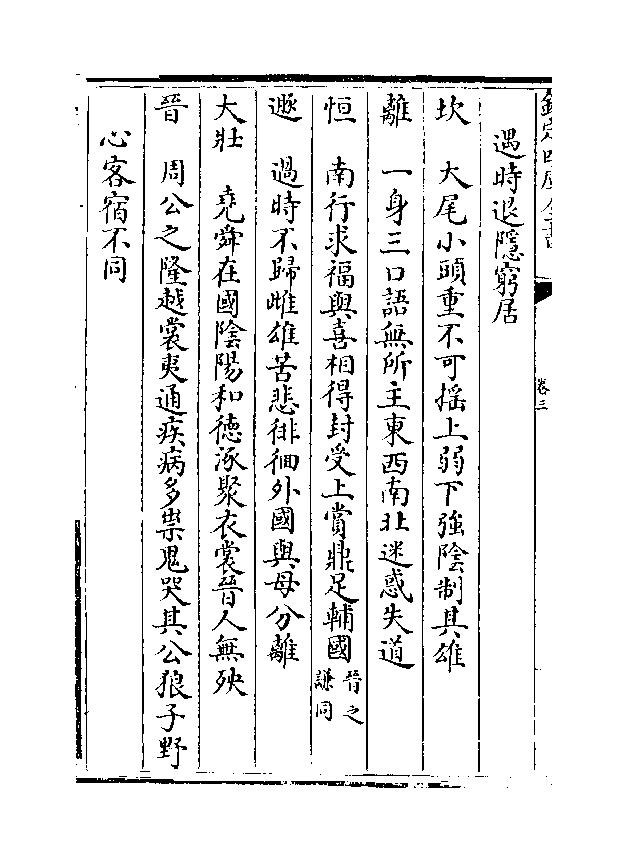 欽定四庫全書
卷三
遇時退隱窮居
坎　大尾小頭重不可摇上弱下強陰制其雄
離　一身三口語無所主東西南北迷惑失道
恒　南行求福與喜相得封受上賞鼎足輔國晉之謙同
遯　過時不歸雌雄苦悲徘徊外國與母分離
大壯　堯舜在國陰陽和德涿聚衣裳晉人無殃
晉　周公之隆越裳夷通疾病多祟鬼哭其公狼子野
心客宿不同